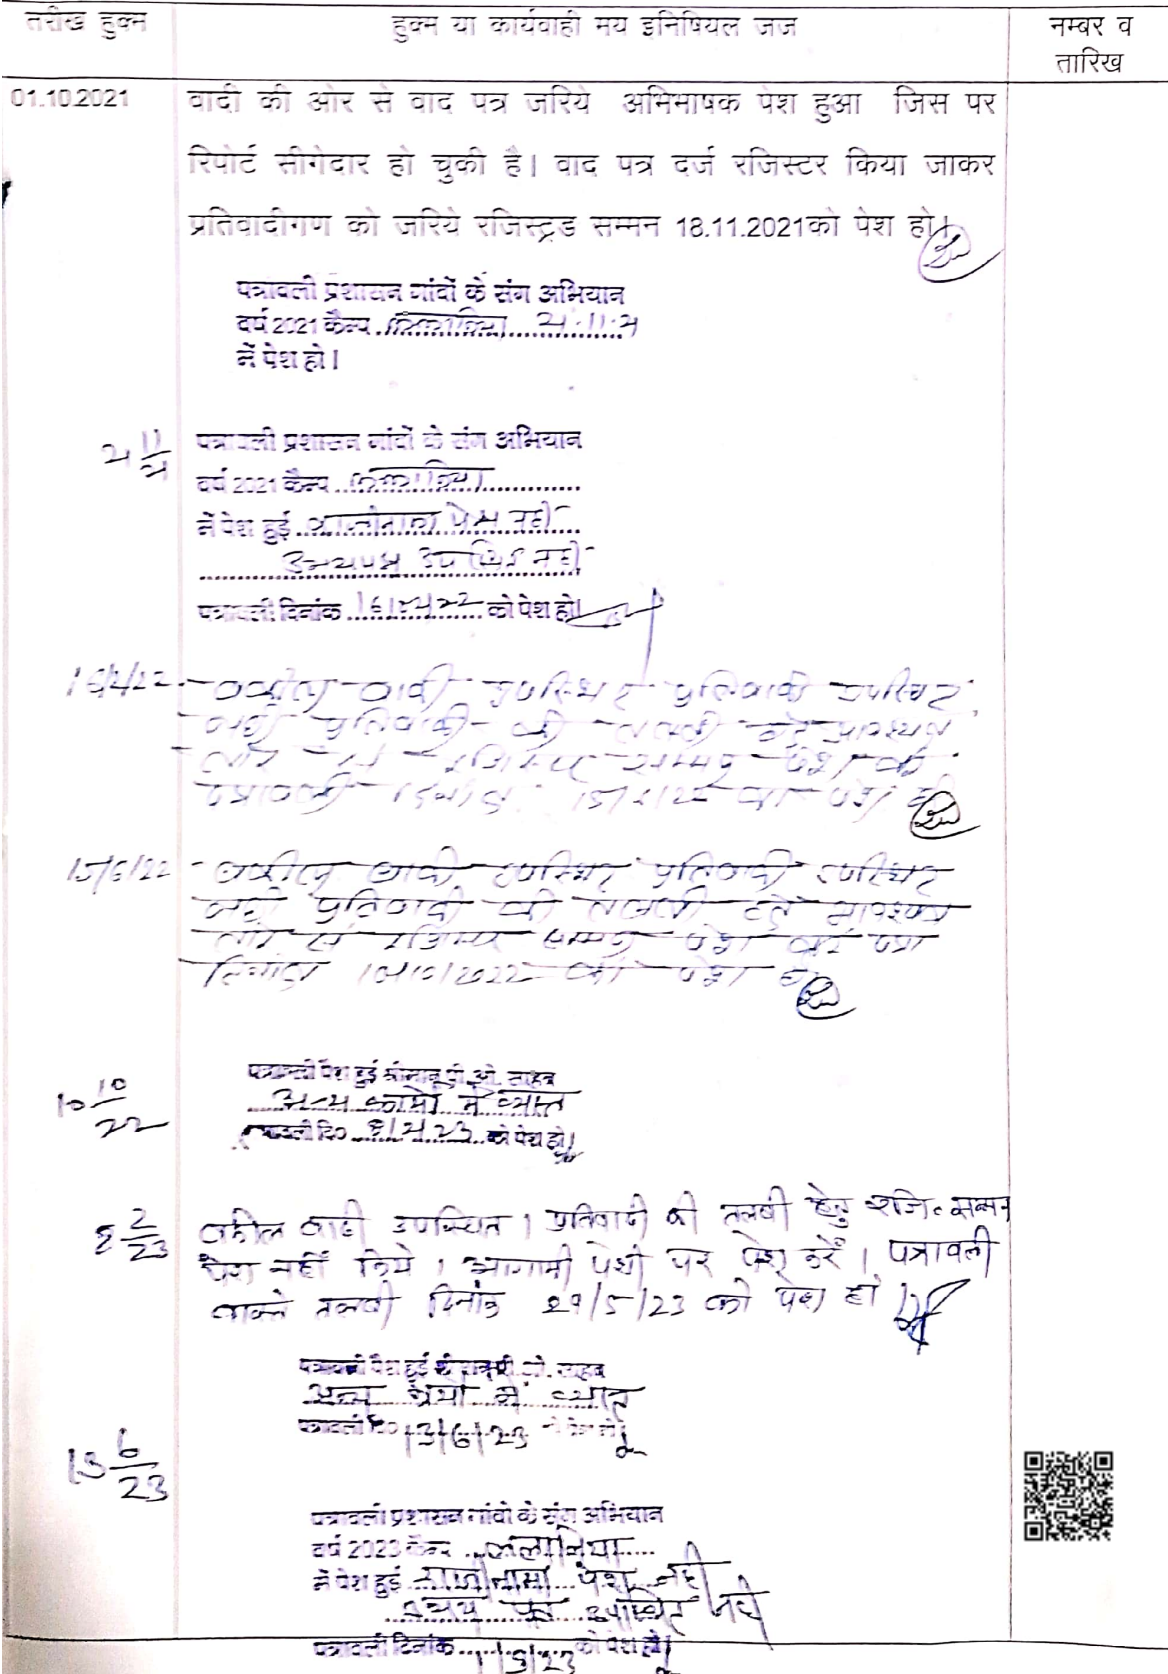 तारीख हुक्म
हुक्म या कार्यवाही मय इनिषियल जज
नम्बर व
तारिख
01.10.2021
वादी की ओर से वाद पत्र जरिये अभिभाषक पेश हुआ जिस पर
रिपोर्ट सीगेदार हो चुकी है। वाद पत्र दर्ज रजिस्टर किया जाकर
प्रतिवादीगण को जरिये रजिस्ट्रड सम्मन 18.11.2021को पेश हो।
पत्रावली प्रशासन गांवों के संग अभियान
वर्ष 2021 कैम्प
में पेश हो।
पत्रावली प्रशासन गांवों के संग अभियान
वर्ष 2021 कैम्प
में पेश हुई राजीनामा पेश नहीं
उभयपक्ष उपस्थित नहीं
पत्रावली दिनांक को पेश हो।
वकील वादी उपस्थित प्रतिवादी उपस्थित
नहीं प्रतिवादी की तलबी हेतु आवश्यक
सम्मन पेश करे
पत्रावली को पेश हो
15/6/22 वकील वादी उपस्थित प्रतिवादी उपस्थित
नहीं प्रतिवादी की तलबी हेतु आवश्यक
सम्मन पेश करे
दिनांक 10/10/2022 को पेश हो
10 10/22
पत्रावली पेश हुई श्रीमान् पी.ओ. साहब
अन्य कामों में व्यस्त
पत्रावली दि० 8/2/23 को पेश हो।
8 2/23
वकील वादी उपस्थित। प्रतिवादी की तलबी हेतु रजि० सम्मन
पेश नहीं किये। आगामी पेशी पर पेश करें। पत्रावली
वास्ते तलबी दिनांक 29/5/23 को पेश हो।
पत्रावली पेश हुई श्रीमान् पी.ओ. साहब
अन्य में व्यस्त
पत्रावली दि० 13/6/23 को पेश हो।
13 6/23
पत्रावली प्रशासन गांवो के संग अभियान
वर्ष 2023 कैम्प कलानिया
में पेश हुई राजीनामा पेश नहीं
उभय पक्ष उपस्थित नहीं
पत्रावली दिनांक को पेश हो।